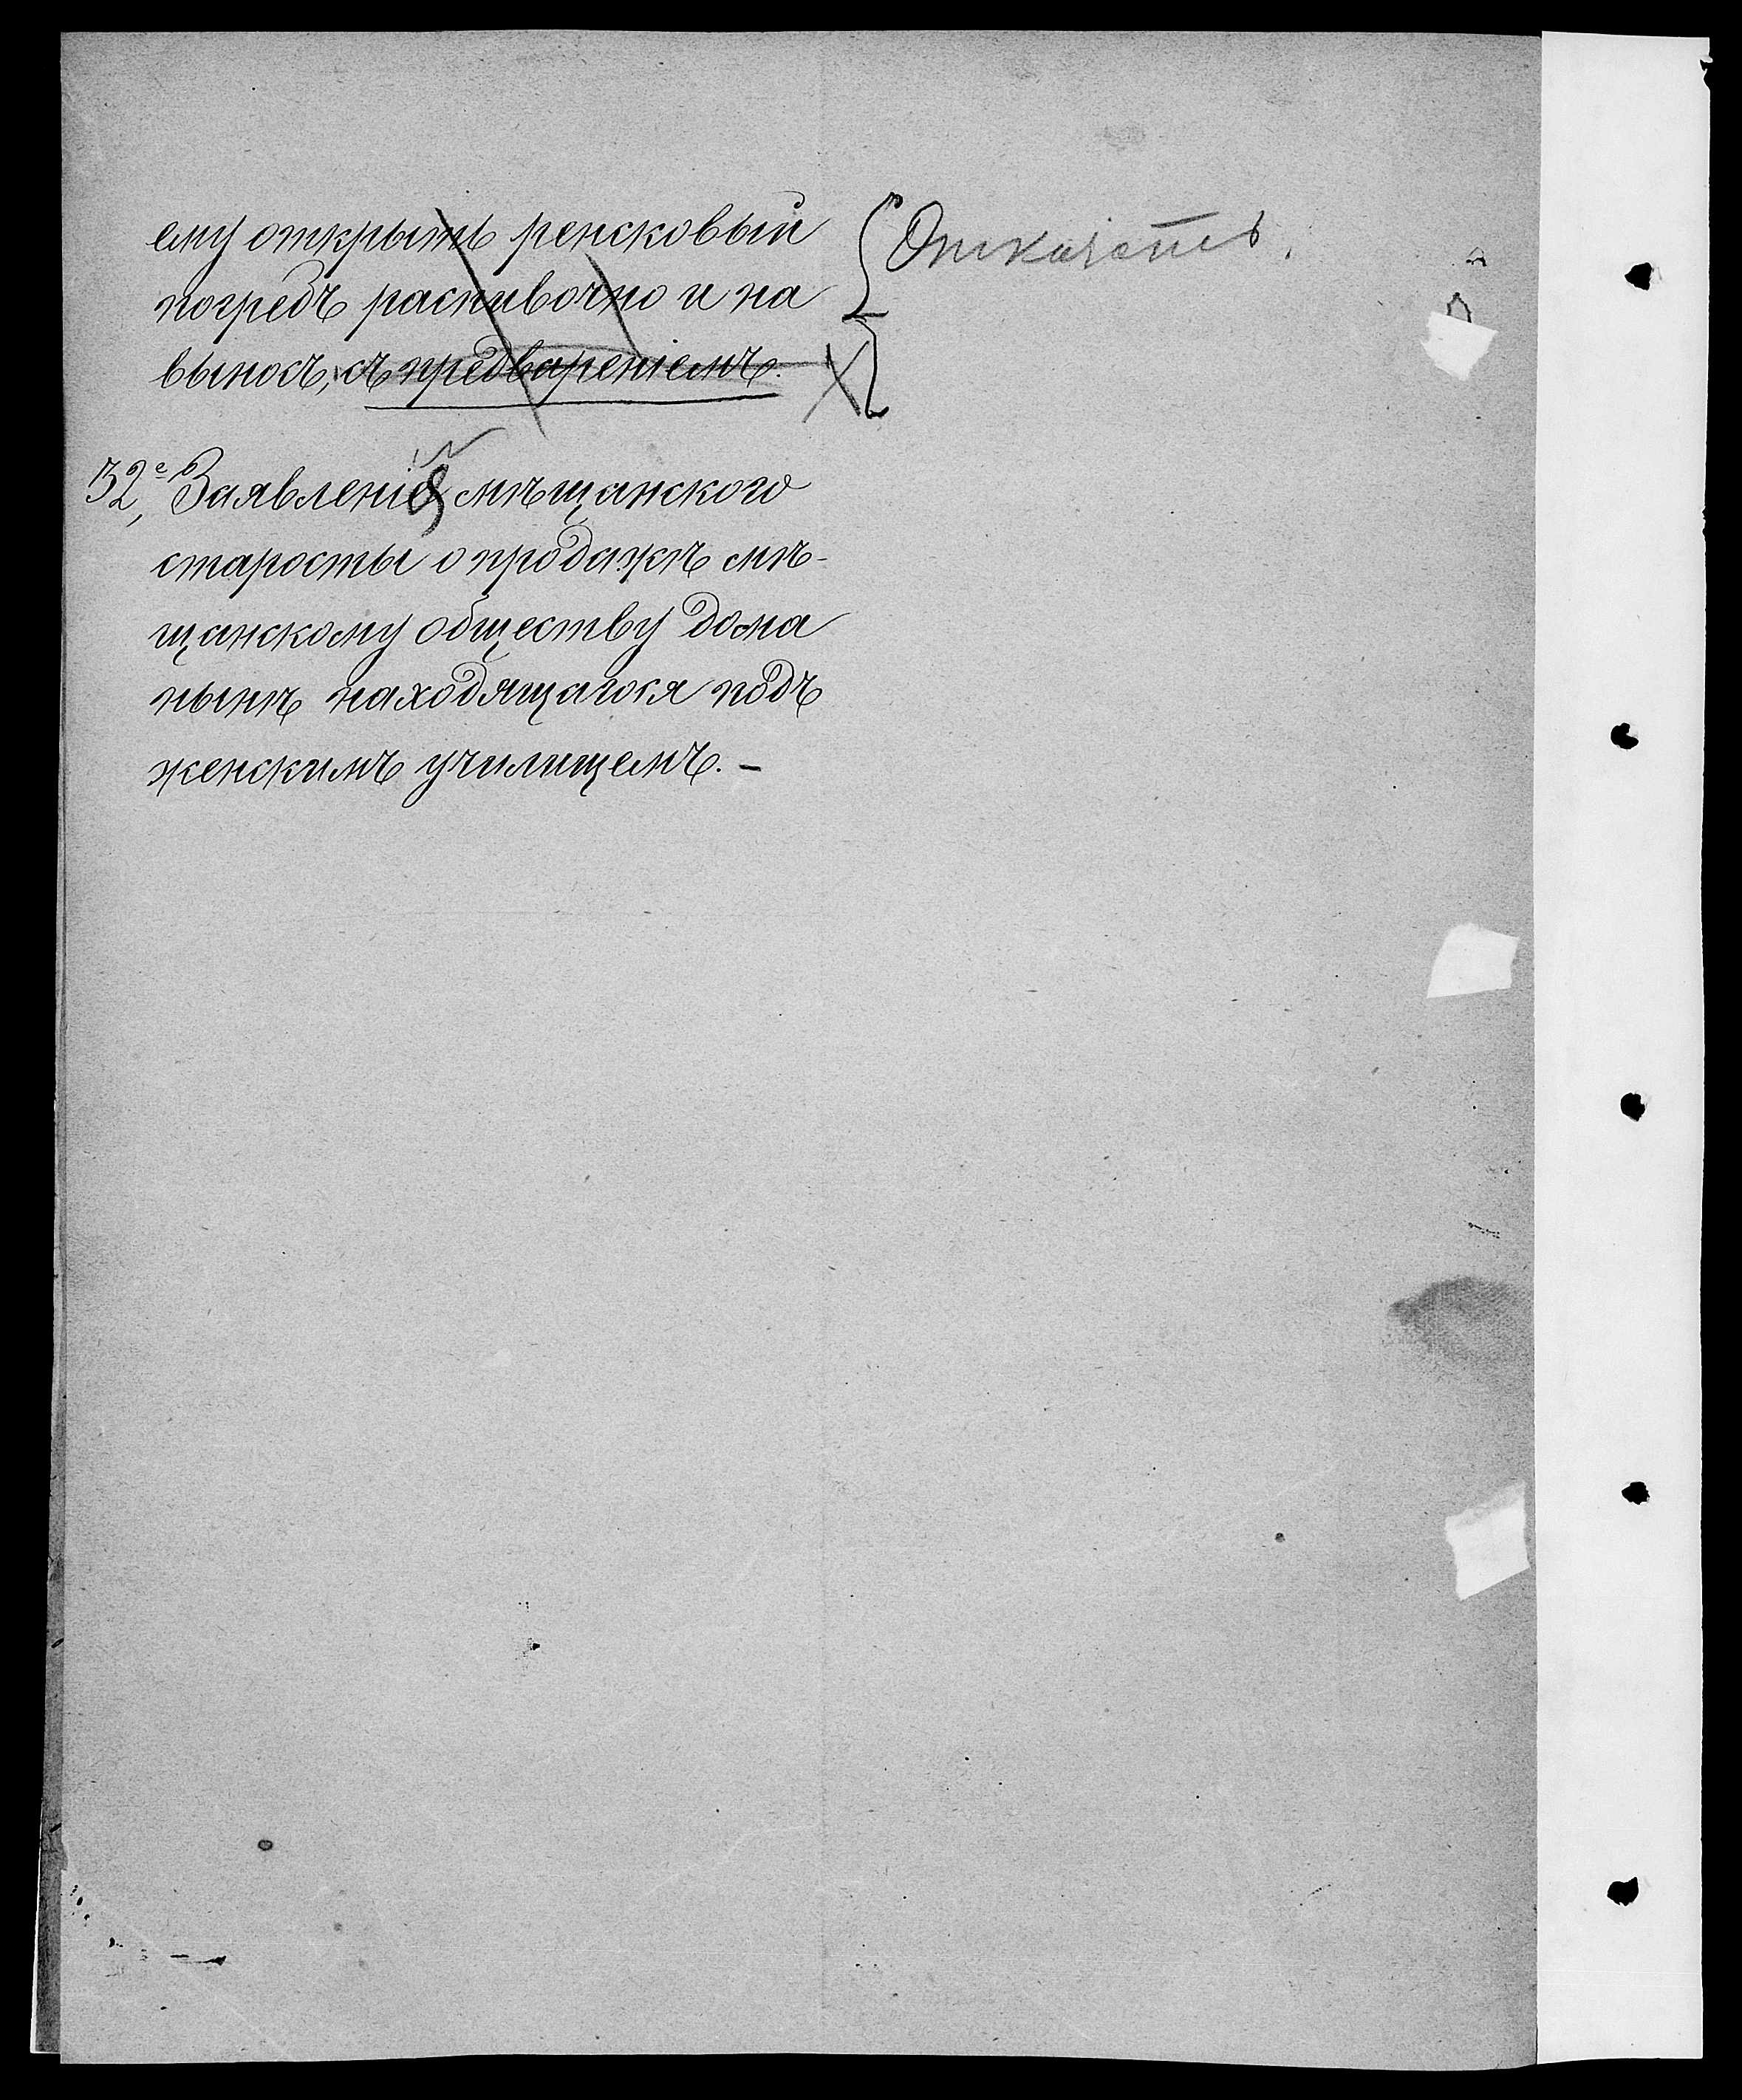 ему открыть ренсковый
погребъ распивочно и на
выносъ, съ предвареніемъ.
Отказать.
32е, Заявленія мѣщанского
старосты о продажѣ мѣ-
щанскому обществу дома
нынѣ находящагося подъ
женскимъ училищемъ. –